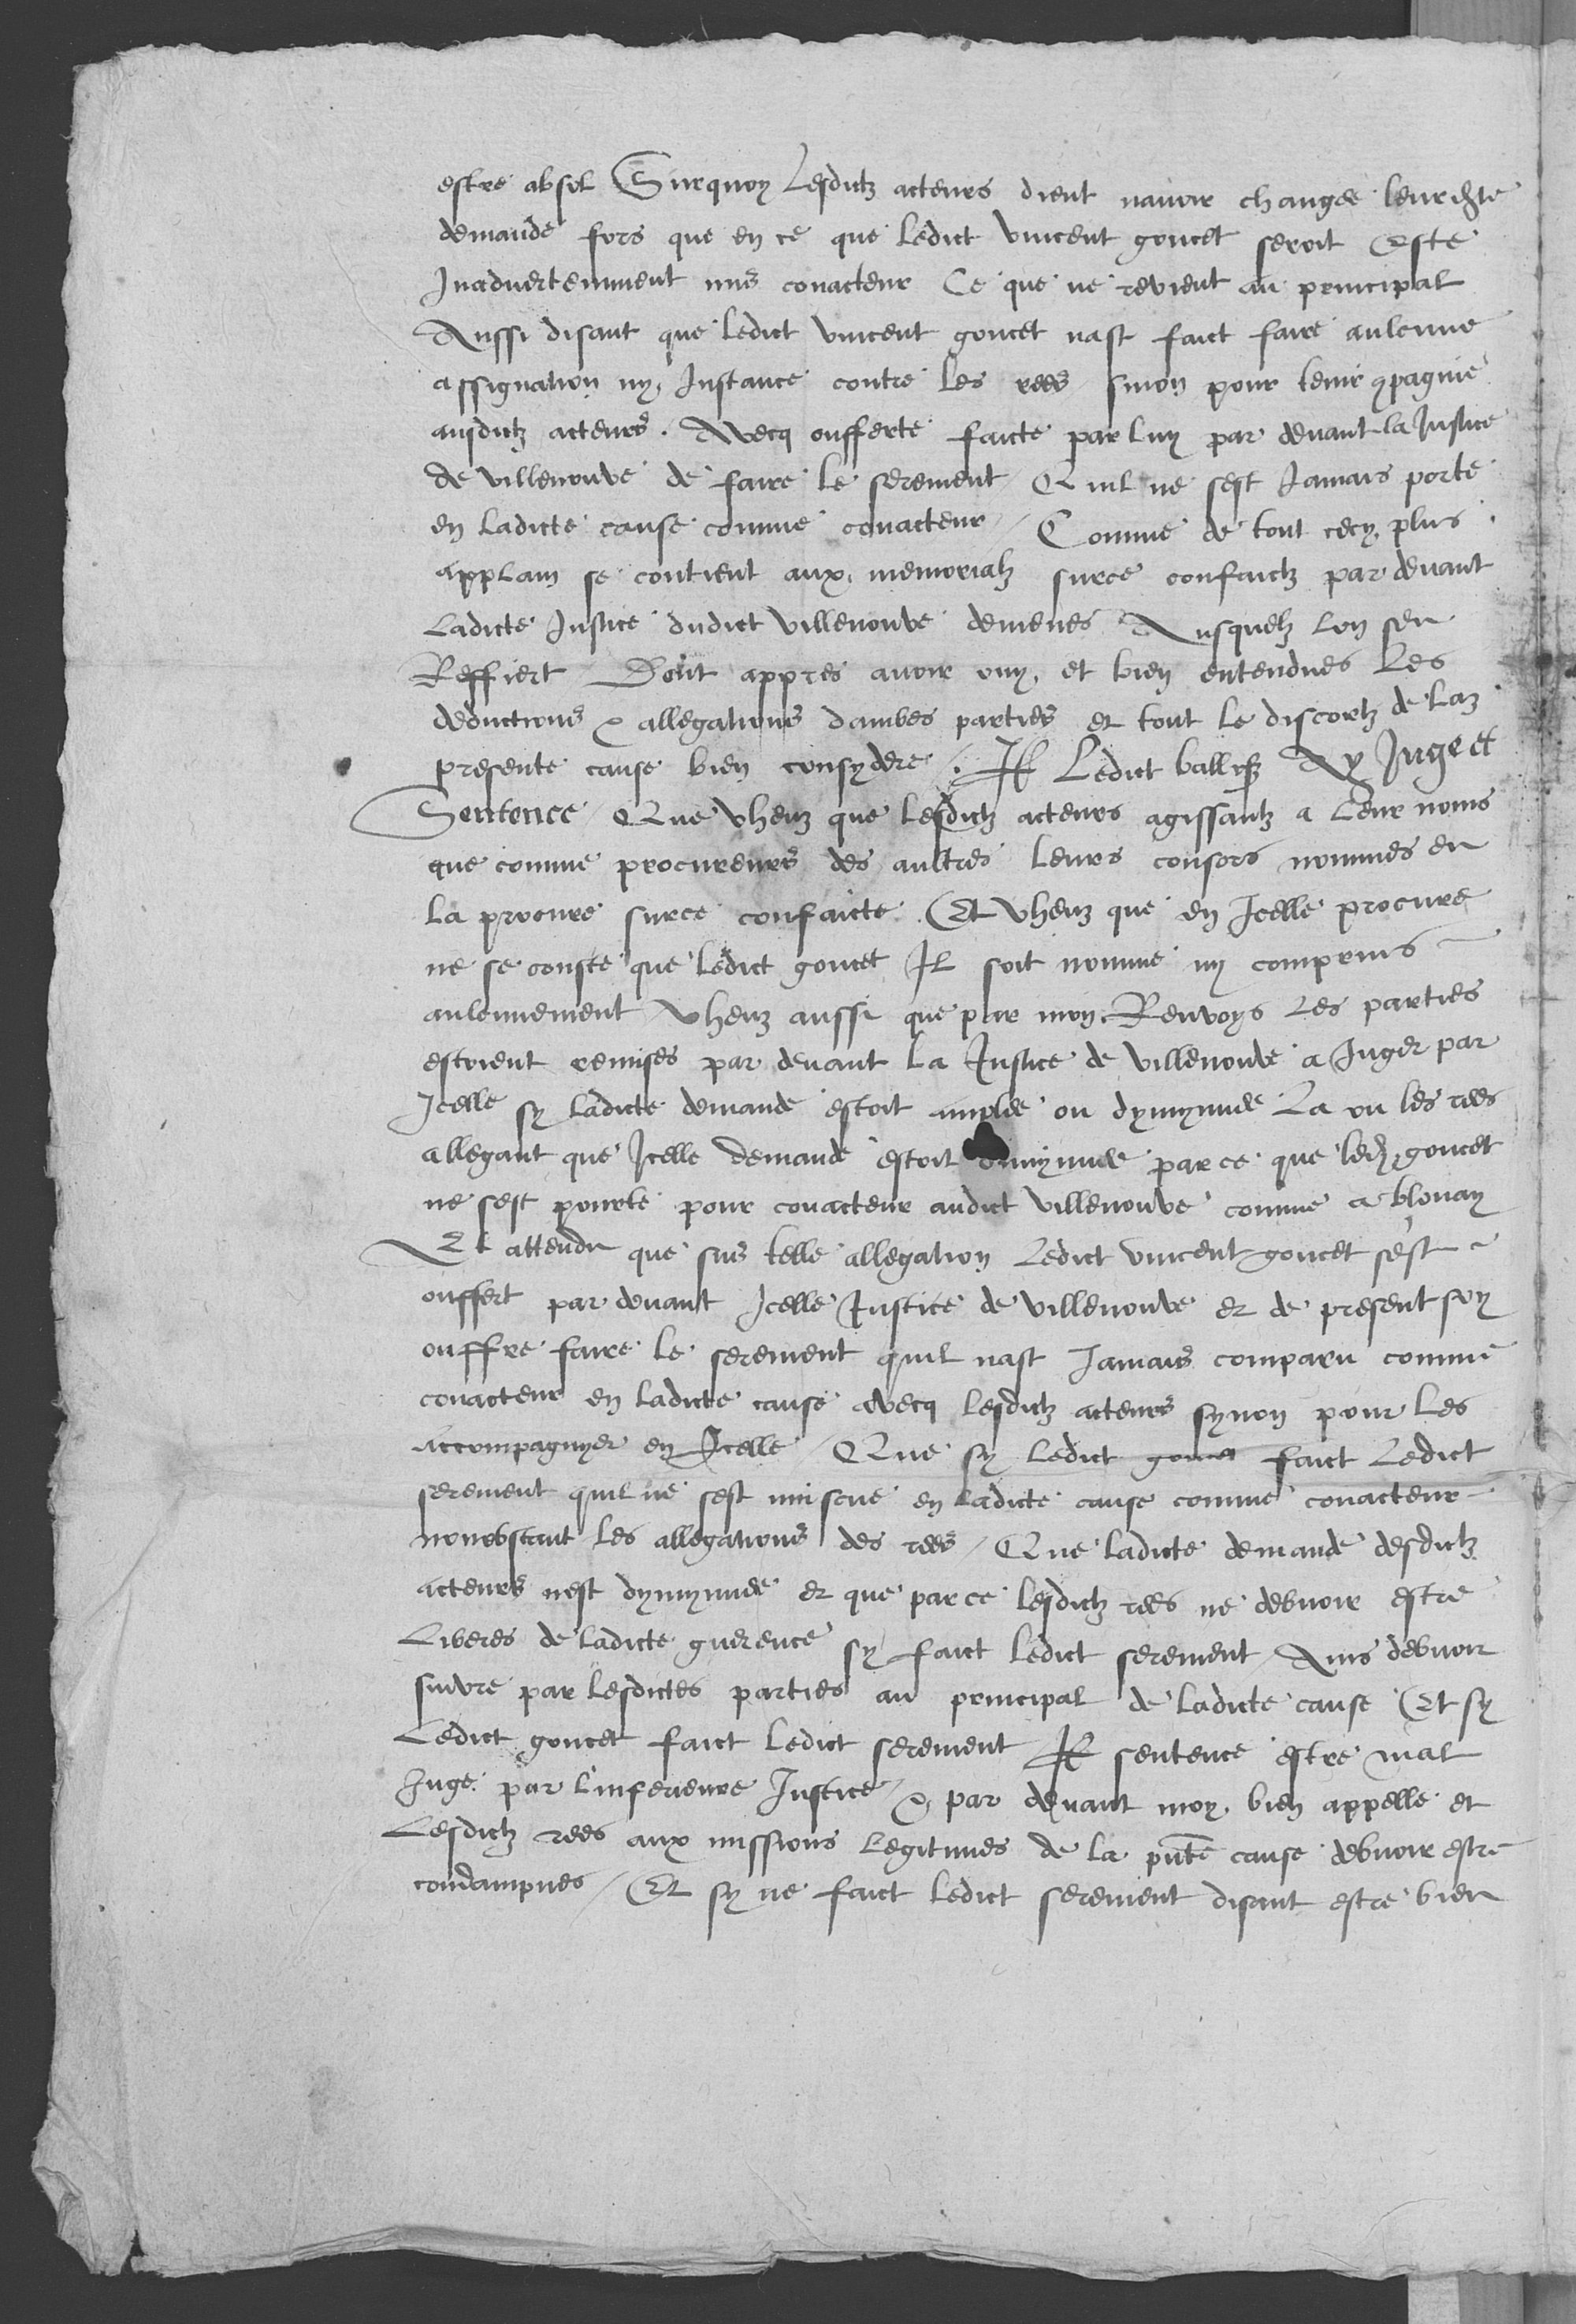 estre absol Surquoy Lesdictz acteurs dient navoir changee leur
demande fors que en ce que Ledict vincent goncet seroit Este
Inadvertemment mis conacteur Ce que ne revient au principal
Aussi disant que ledict vincent goncet nast faict faire aulcune
assignation ny Instance contre les rees sinon pour tenir 9pagnie
ausdictz acteurs. Avecq oufferte faicte par luy par devant la Justice
de villenouve de faire le serement Quil ne sest Jamais porte
en ladicte cause comme conacteur / Comme de tout cecy plus
applain se contient aux memorialz surce confaictz par devant
Ladicte Justice dudict villenouve demenes Ausquelz lon sen
Reffiert Dont appres avoir ouy et bien entendues Les
deductions & allegations dambes parties et tout le discortz de la
presente cause bien consydere /. Je Ledict ballifz Ay Juge et
Sentence / Que vheuz que lesdictz acteurs agissantz a leur noms
que comme procureurs des aultres leurs consors nommes en
la procure surce confaicte. Et vheuz que en Jcelle procure
ne se conste que ledict goncet Il soit nomme ny comprins
aulcunement vheuz aussi que par moy Renvoys les parties
estoient remises par devant la Justice de villenouve a Juger par
Jcelle sy ladicte demande estoit amplee ou dymynuee La ou les rees
allegant que Jcelle demande estoit dimynuee par ce que led goncet
ne sest pourte pour conacteur audict villenouve comme a blonay
Et attendu que sus telle allegation Ledict vincent goncet sest
ouffert par devant Jcelle Justice de villenouve et de present soy
ouffre faire le serement quil nast Jamais comparu comme
conacteur en ladicte cause avecq lesdictz acteurs synon pour les
accompagnyer en Jcelle / Que sy ledict goncet faict Ledict
serement quil ne sest miscue en ladicte cause comme conacteur
nonobstant les allegations des rees / Que ladicte demande desdictz
acteurs nest dymynuee et que par ce lesdictz rees ne debvoir estre
Liberes de ladicte guerence sy faict ledict serement Ains debvoir
suivre par lesdictes parties au principal de ladicte cause Et sy
Ledict goncet faict Ledict serement Je sentence estre mal
Juge par linferieure Justice & par devant moy bien appelle et
Lesdictz rees aux missions legitimes de la pnte cause debvoir estre
condampnes / Et sy ne faict ledict serement disant estre bien